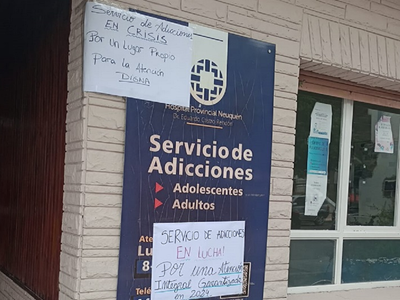 Servicio de Adicciones
EN CRISIS
Por un Lugar Propio
Para la Atención
DIGNA
Hospital Provincial Neuquén
Dr. Eduardo Castro Rendón
Servicio de
Adicciones
Adolescentes
Adultos
Ate
Lu
8-
Telé
SERVICIO DE ADICCIONES
EN LUCHA!
Por una Atención
Integral Garantizada
en 2024